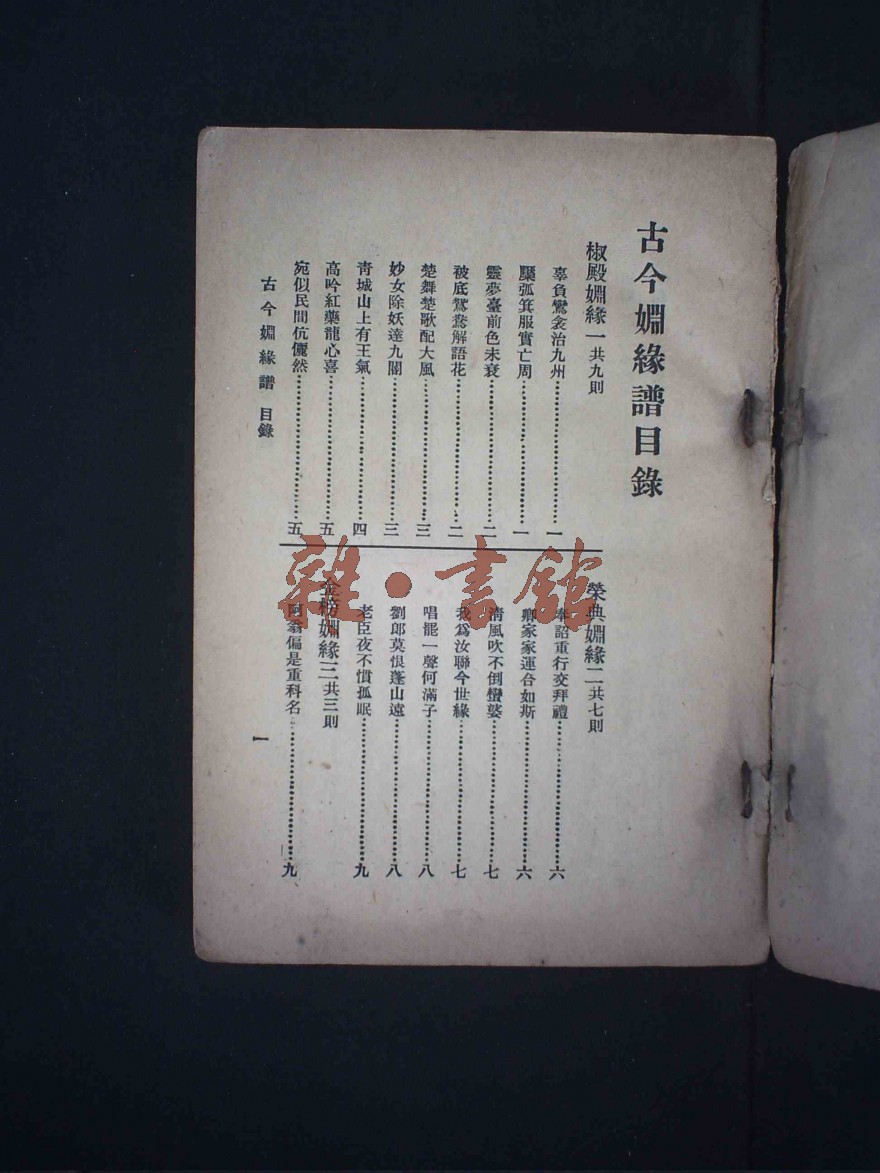 古今婣緣譜目錄
椒殿婣緣一共九則
辜負鸞衾治九州…………一
檿弧箕服實亡周…………一
靈夢臺前色未衰…………二
被底鴛鴦解語花…………二
楚舞楚歌配大風…………三
妙女除妖達九關…………三
青城山上有王氣…………四
高吟紅藥龍心喜…………五
宛似民間伉儷然…………五
榮典婣緣二共七則
奉詔重行交拜禮…………六
卿家家運合如斯…………六
清風吹不倒蠻婆…………七
我爲汝聯今世緣…………七
唱罷一聲何滿子…………八
劉郎莫恨蓬山遠…………八
老臣夜不慣孤眠…………九
金榜婣緣三共三則
阿翁偏是重科名…………九
古今婣緣譜 目錄
一
雜·書館